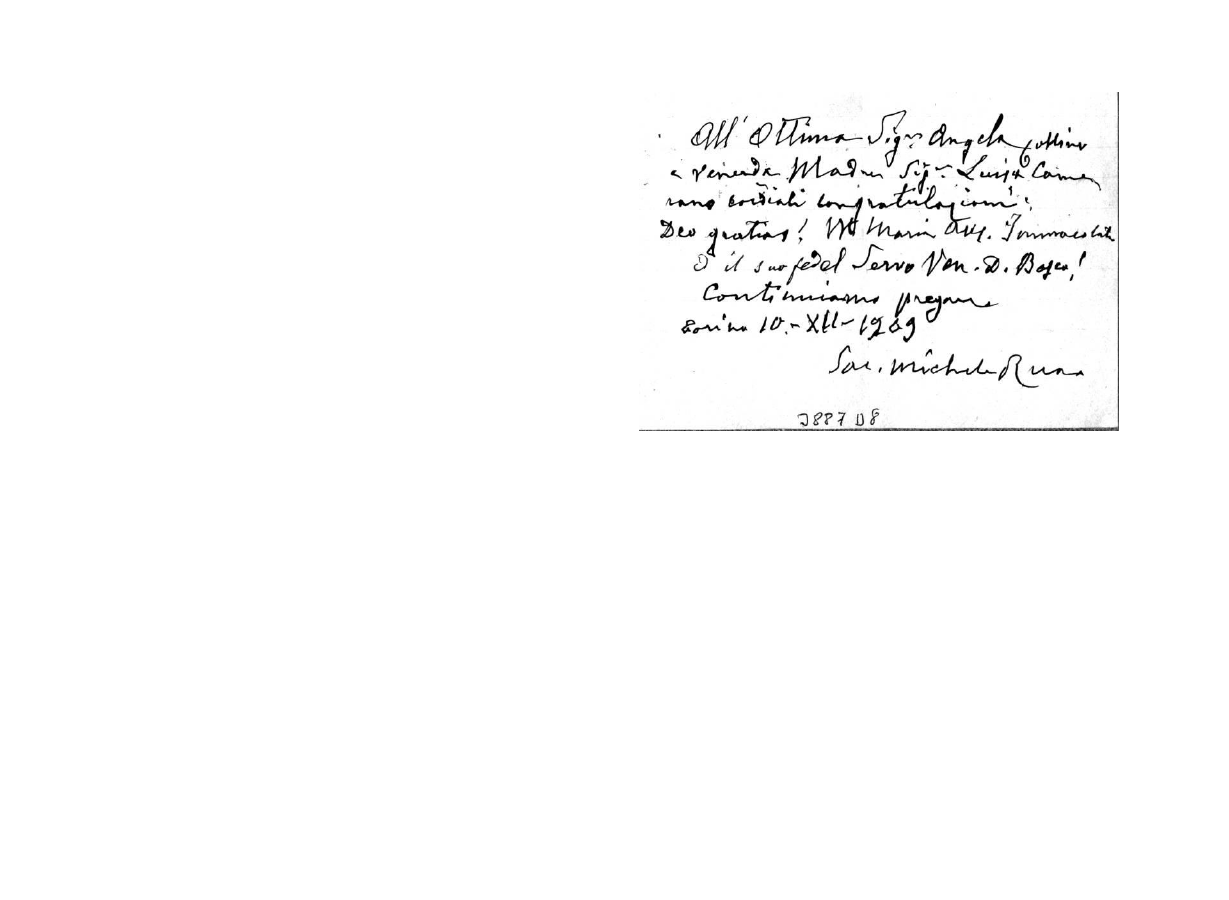 All' Ottima Sigra Angela
e veneranda Madre Sigra Luisa Came
rano cordiali congratulazioni:
Deo gratias! W Maria Aus. Immacolata
E il suo fedel Servo Ven. D. Bosco!
Continuiamo pregare
Torino 10.-XII-1909
Sac. Michele Rua
3887 D8